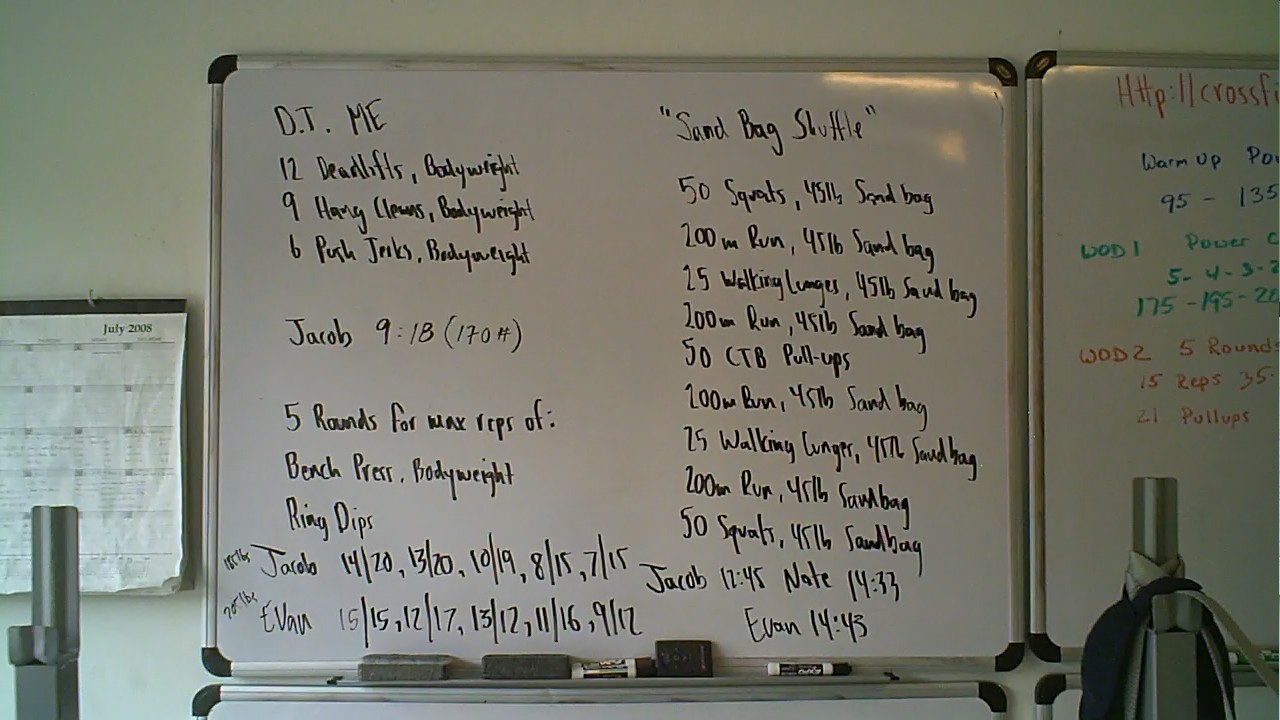 July 2008
D.T. ME
12 Deadlifts, Bodyweight
9 Hang Cleans, Bodyweight
6 Push Jerks, Bodyweight
Jacob 9:18 (170#)
5 Rounds for max reps of:
Bench Press, Bodyweight
Ring Dips
185lbs Jacob 14/20, 13/20, 10/19, 8/15, 7/15
Evan 15/15, 12/17, 13/12, 11/16, 9/12
"Sand Bag Shuffle"
50 Squats, 45lb Sand bag
200m Run, 45lb Sand bag
25 Walking Lunges, 45lb Sand bag
200m Run, 45lb Sand bag
50 CTB Pull-ups
200m Run, 45lb Sand bag
25 Walking Lunges, 45lb Sand bag
200m Run, 45lb Sandbag
50 Squats, 45lb Sandbag
Jacob 12:45 Nate 14:33
Evan 14:43
Http://crossfi
Warm up Po
95 - 135
WOD1 Power C
5-4-3-2
175-195-20
WOD2 5 Rounds
15 Reps 35
21 Pullups
EXPO